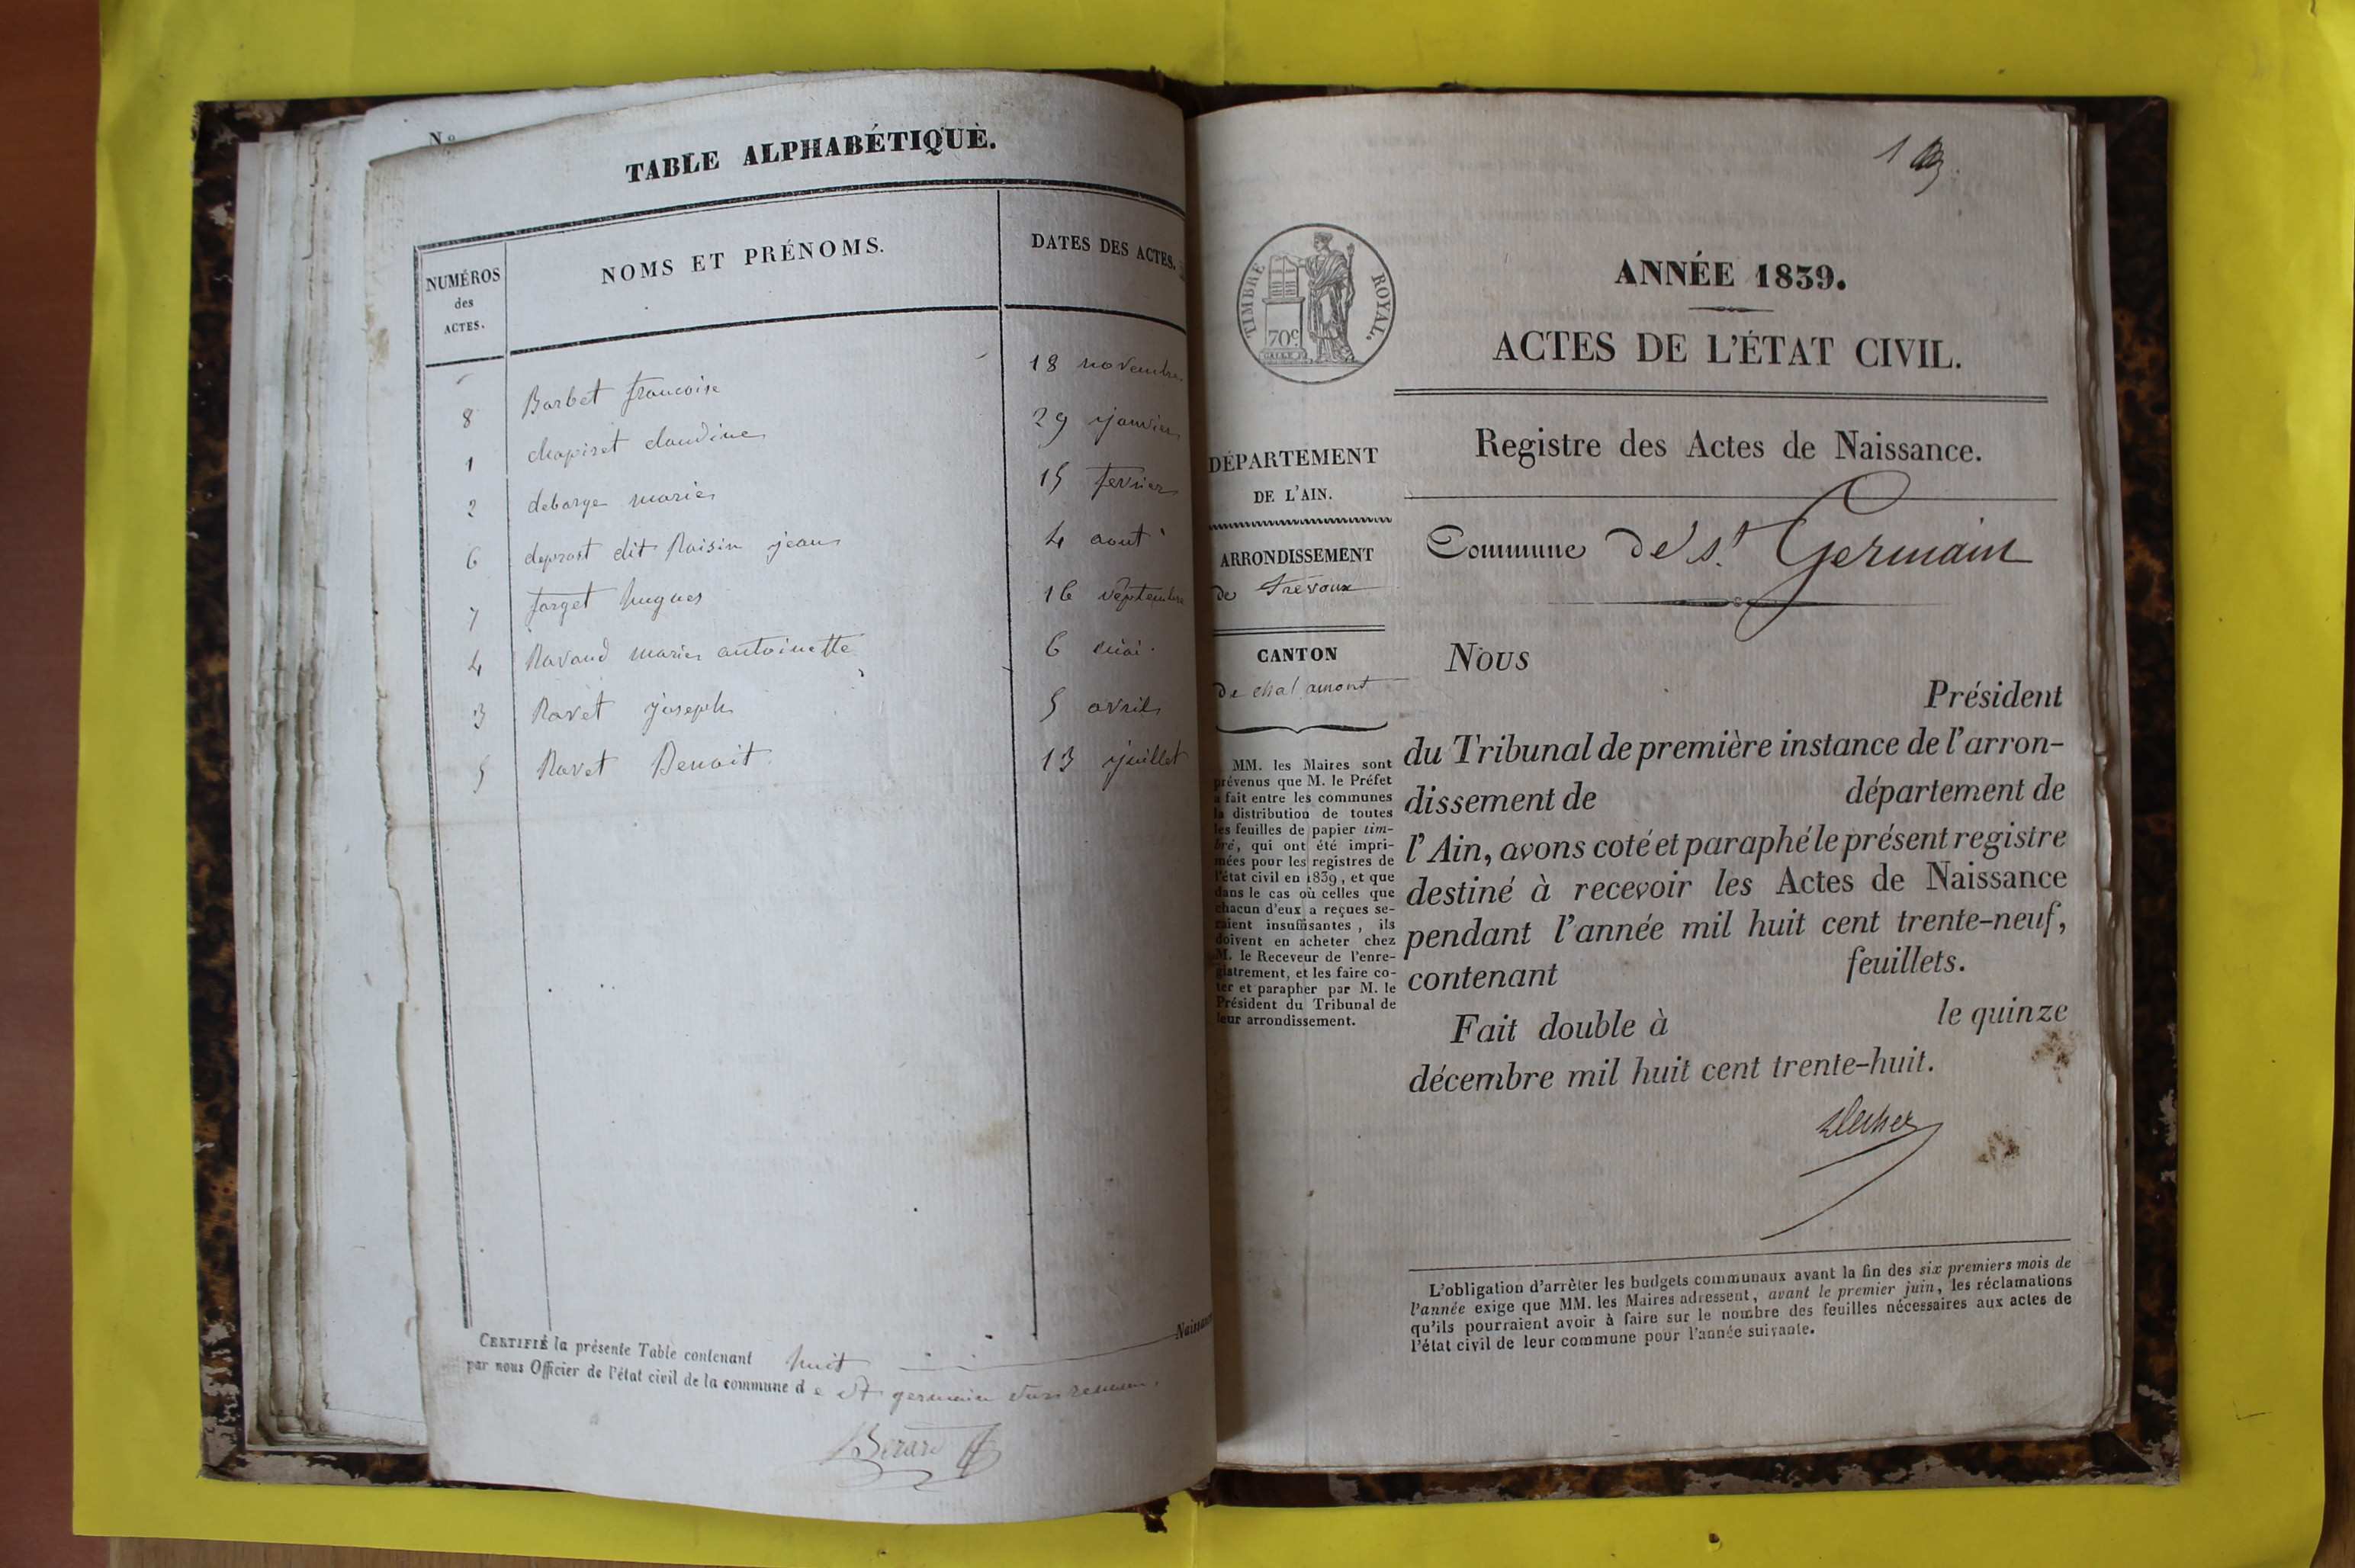 N.o
TABLE ALPHABÉTIQUE.
NUMÉROS
des
ACTES.
NOMS ET PRÉNOMS.
DATES DES ACTES.
8 Barbet francoise 18 novembre
1 chapiret claudine 29 janvier
2 debarge marie 15 fevrier
6 deprost dit Raisin jean 4 aout
7 forget hugues 16 septembre
4 Ravaud marie antoinette 6 mai
3 Ravet joseph 5 avril
5 Ravet Benoit 13 juillet
CERTIFIÉ la présente Table contenant huit Naissan
par nous Officier de l'état civil de la commune de St germain sur renom
Berard
1
TIMBRE ROYAL.
70c
ANNÉE 1839.
ACTES DE L'ÉTAT CIVIL.
Registre des Actes de Naissance.
DÉPARTEMENT
DE L'AIN.
ARRONDISSEMENT
de Trévoux
CANTON
de chalamont
MM. les Maires sont
prévenus que M. le Préfet
a fait entre les communes
la distribution de toutes
les feuilles de papier tim-
bré, qui ont été impri-
mées pour les registres de
l'état civil en 1839, et que
dans le cas où celles que
chacun d'eux a reçues se-
raient insuffisantes, ils
doivent en acheter chez
M. le Receveur de l'enre-
gistrement, et les faire co-
ter et parapher par M. le
Président du Tribunal de
leur arrondissement.
Commune de St. Germain
Nous
Président
du Tribunal de première instance de l'arron-
dissement de département de
l'Ain, avons coté et paraphé le présent registre
destiné à recevoir les Actes de Naissance
pendant l'année mil huit cent trente-neuf,
contenant feuillets.
Fait double à le quinze
décembre mil huit cent trente-huit.
L'obligation d'arrêter les budgets communaux avant la fin des six premiers mois de
l'année exige que MM. les Maires adressent, avant le premier juin, les réclamations
qu'ils pourraient avoir à faire sur le nombre des feuilles nécessaires aux actes de
l'état civil de leur commune pour l'année suivante.